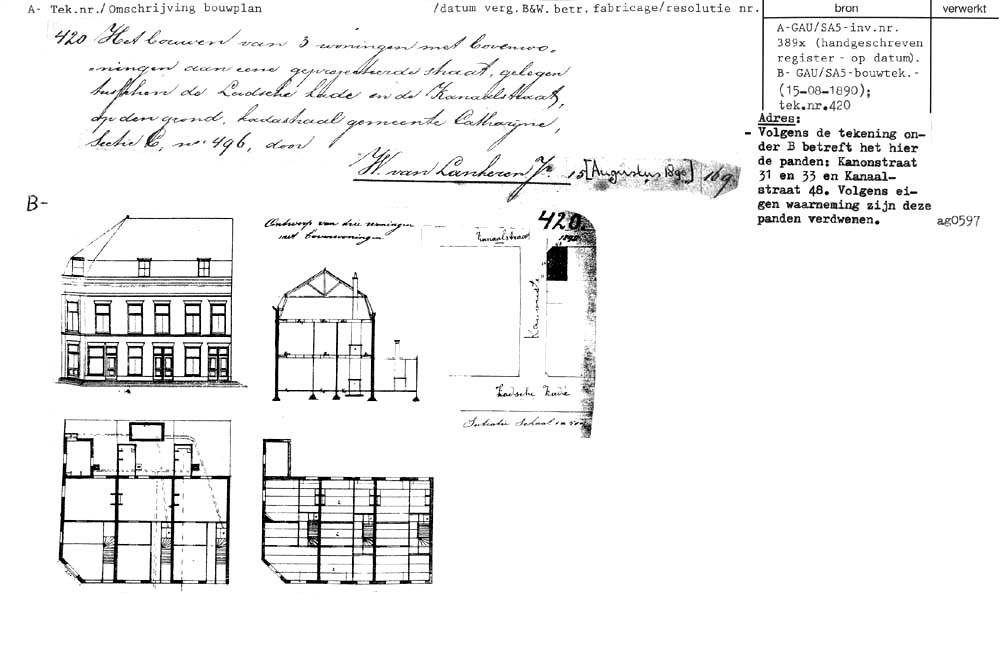 A- Tek.nr./Omschrijving bouwplan /datum verg.B&W. betr. fabricage/resolutie nr. bron verwerkt
420 Het bouwen van 3 woningen met bovenwo-
ningen aan eene geprojecteerde straat, gelegen
tusschen de Leidsche kade en de Kanaalstraat,
op den grond, kadastraal gemeente Catharijne,
Sectie C, no 496, door
W. van Lankeren Jr. 15 [Augustus 1890] 169
A-GAU/SA5-inv.nr.
389x (handgeschreven
register - op datum).
B- GAU/SA5-bouwtek.-
(15-08-1890);
tek.nr.420
Adres:
- Volgens de tekening on-
der B betreft het hier
de panden: Kanonstraat
31 en 33 en Kanaal-
straat 48. Volgens ei-
gen waarneming zijn deze
panden verdwenen.
ag0597
B-
Ontwerp van drie woningen
met bovenwoningen
420.
1890
Kanaalstraat
Leidsche Kade
Situatie Schaal